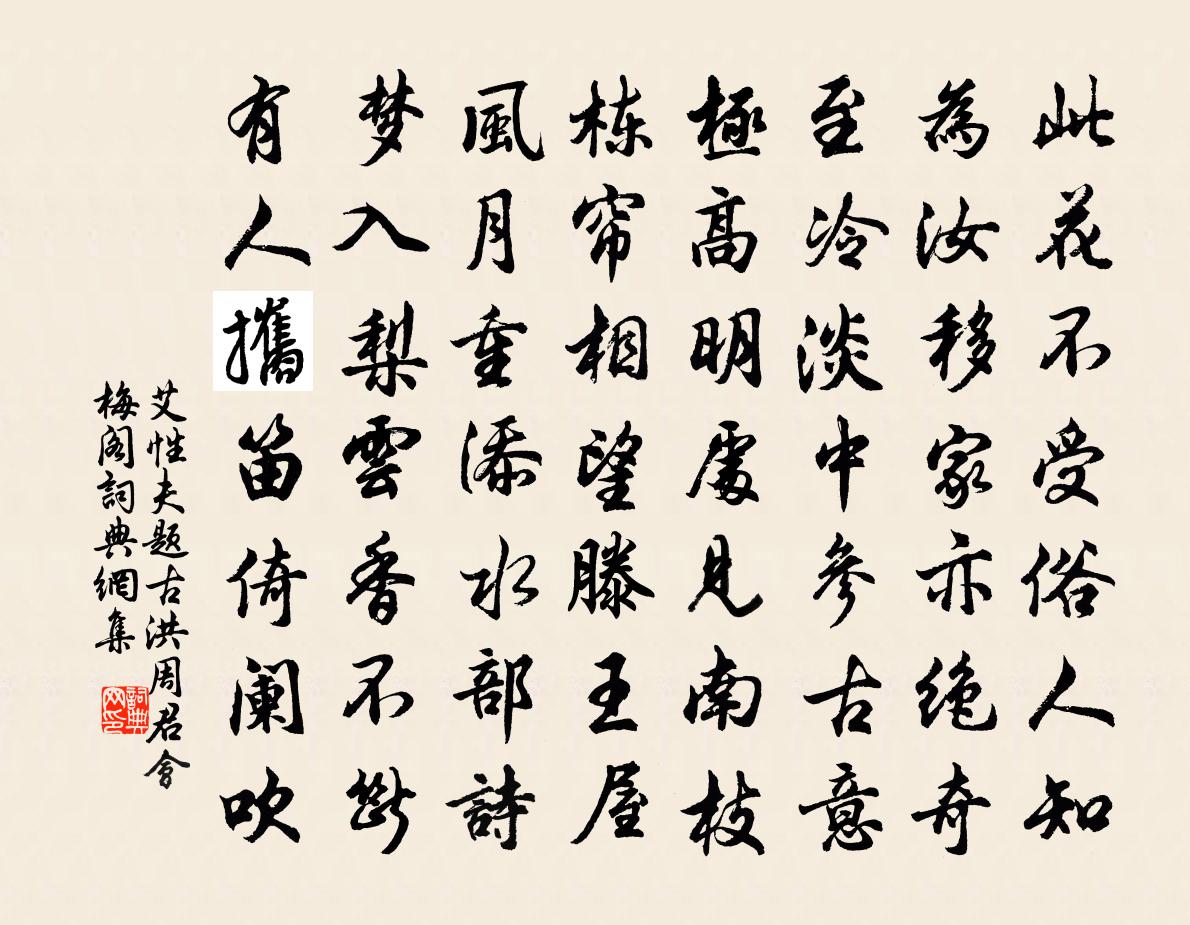 此花不受俗人知
為汝移家亦绝奇
至冷淡中參古意
極高明處見南枝
栋帘相望滕王屋
風月重添水部詩
梦入梨雲香不斷
有人攜笛倚阑吹
艾性夫题古洪周君會
梅阁詞典網集
詞典网印